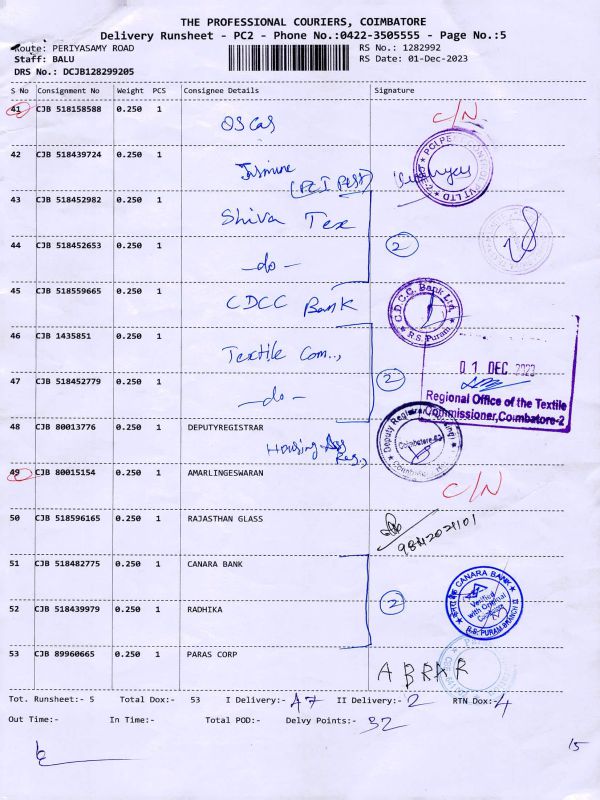 THE PROFESSIONAL COURIERS, COIMBATORE
Delivery Runsheet - PC2 - Phone No.:0422-3505555 - Page No.:5
Route: PERIYASAMY ROAD RS No.: 1282992
Staff: BALU RS Date: 01-Dec-2023
DRS No.: DCJB128299205
S No Consignment No Weight PCS Consignee Details Signature
41 CJB 518158588 0.250 1 C/N
OSCAS
42 CJB 518439724 0.250 1 Jasmine
(PCI PEST)
43 CJB 518452982 0.250 1 Shiva Tex
2
44 CJB 518452653 0.250 1 -do-
45 CJB 518559665 0.250 1 CDCC Bank
C.D.C.C. Bank Ltd.
R.S. Puram
46 CJB 1435851 0.250 1 Textile Com..,
01 DEC 2023
47 CJB 518452779 0.250 1 -do- 2
Regional Office of the Textile
Commissioner, Coimbatore-2
48 CJB 80013776 0.250 1 DEPUTYREGISTRAR
Housing
Reg.,
Deputy Registrar
Coimbatore
49 CJB 80015154 0.250 1 AMARLINGESWARAN C/N
50 CJB 518596165 0.250 1 RAJASTHAN GLASS
51 CJB 518482775 0.250 1 CANARA BANK
CANARA BANK
Verified
with Original
R.S. PURAM BRANCH
2
52 CJB 518439979 0.250 1 RADHIKA
53 CJB 89960665 0.250 1 PARAS CORP
ABRAR
Tot. Runsheet:- 5 Total Dox:- 53 I Delivery:- 47 II Delivery:- 2 RTN Dox:- 4
Out Time:- In Time:- Total POD:- Delvy Points:- 32
15